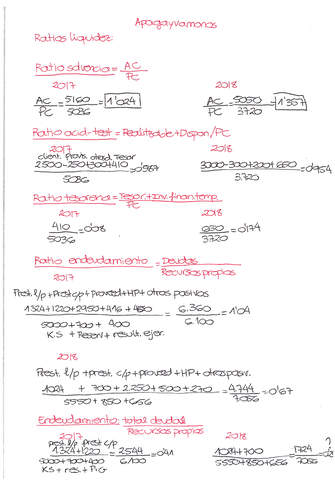 Apaga y vamonos
Ratios liquidez:
Ratio solvencia = AC / PC
2017 2018
AC/PC = 5160/5036 = 1'024 AC/PC = 5050/3720 = 1'357
Ratio acid-test = Realizable + Dispon/PC
2017 2018
client. Provis. otrosd. Tesor
2500-250+300+410 / 5036 = 0'587 3000-300+300+650 / 3720 = 0'954
Ratio tesoreria = Tesor + Inv. finan. temp. / PC
2017 2018
410/5036 = 0'08 650/3720 = 0'174
Ratio endeudamiento = Deudas / Recursos propios
2017
Prest. l/p + Prest c/p + proveed + HP + otros pasivos
1324+1220+2950+416+450 / 5000+700+400 = 6.360/6.100 = 1'04
K.S + Reserv + result. ejer.
2018
Prest. l/p + prest. c/p + proveed + HP + otros pasiv.
1024 + 700 + 2.250 + 500 + 270 / 5550+850+656 = 4744/7056 = 0'67
Endeudamiento: total deudas / Recursos propios
2017 2018
prest l/p prest c/p
1324+1220 / 5000+700+400 = 2544/6100 = 0'41 1024+700 / 5550+850+656 = 1724/7056
KS + res. + PyG